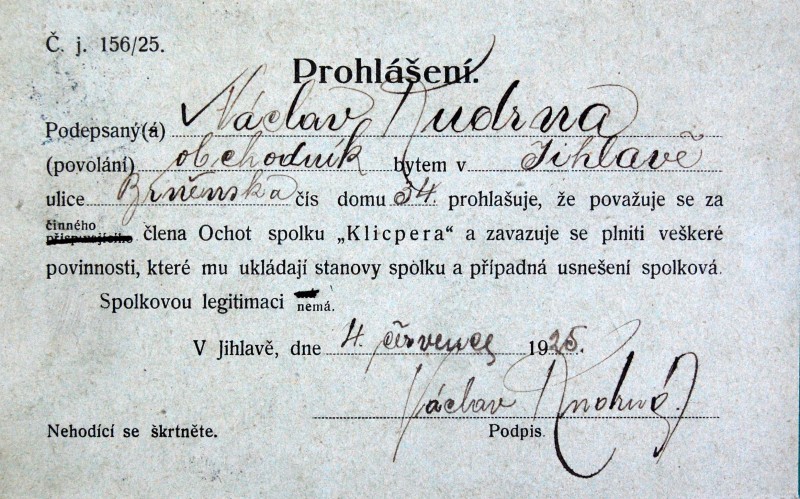 Č. j. 156/25.
Prohlášení.
Podepsaný(á) Václav Kudrna
(povolání) obchodník bytem v Jihlavě
ulice Brněnska čís domu 34. prohlašuje, že považuje se za
činného
přispívajícího člena Ochot spolku „Klicpera“ a zavazuje se plniti veškeré
povinnosti, které mu ukládají stanovy spolku a případná usnešení spolková.
Spolkovou legitimaci nemá.
V Jihlavě, dne 4. července 1925.
Václav Kudrna.
Nehodící se škrtněte. Podpis.